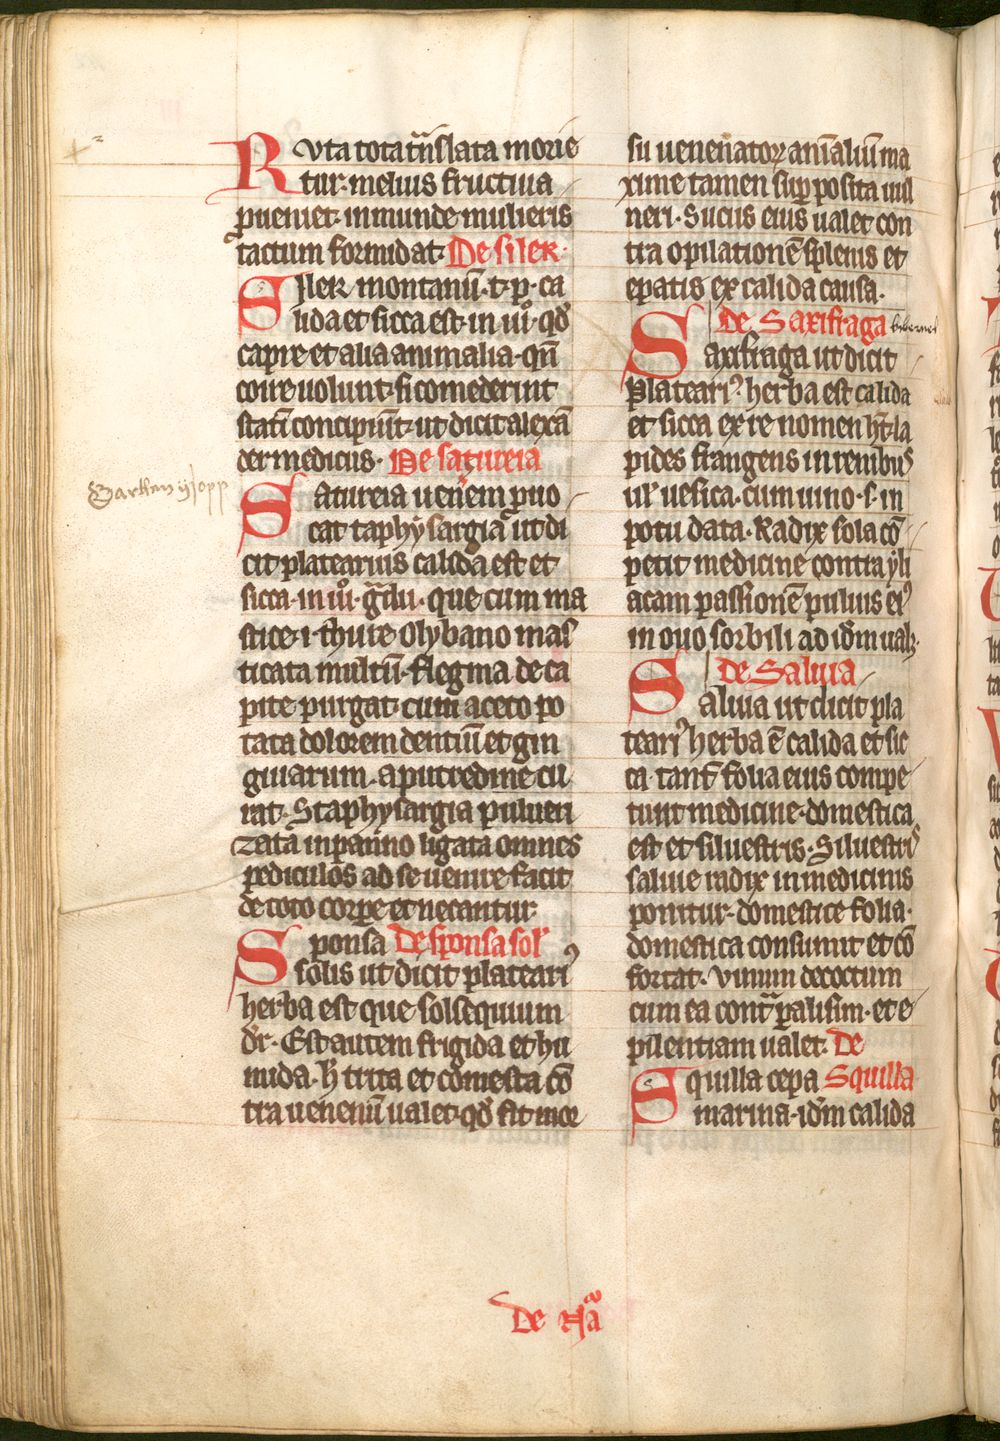 Ruta tota tr̄nslata morie
tur. melius fructiua
ꝓueniet. inmunde mulieris
tactum formidat. De siler.
Siler montanū. t. p. ca
lida et sicca est in iii. qd̄
capre et alia animalia. qn̄
coire uolunt. si comederint
statī concipiūt. ut dicit alexā
der medicus. De satureia
Satureia
cat taphysargia ut di
cit platearius calida est et
sicca. in iii. gͣdu. que cum ma
stice. i. thure olybano mas
ticata multū. flegma de ca
pite purgat. cum aceto po
tata dolorem dentiū et gin
giuarum. a putredine cu
rat. Staphysargia pulueri
zata in panno ligata omnes
pediculos ad se uenire facit
de toto corꝑe et necantur
Sponsa De sponsa sol'
solis ut dicit plateari⁹
herba est que solsequium
dr̄. Est autem frigida et hu
mida. h̄ trita et comesta cō
tra uenenū ualet. qd̄ fit mor
su uenenatoꝝ anīaliū ma
xime tamen suꝑ posita uul
neri. Sucus eius ualet con
tra opilationē splenis et
epatis ex calida causa.
De Saxifraga
Saxifraga ut dicit
Plateari⁹. herba est calida
et sicca ex re nomen hꝫ la
pides frangens in renibus
ul' uesica. cum uino. s. in
potu data. Radix sola cō
petit medicine contra yli
acam passionē puluis ei⁹
in ouo sorbili ad idm̄ ualꝫ.
De Saluia
Saluia ut dicit pla
teari⁹ herba ē calida et sic
ca. tant̄ folia eius compe
tunt medicine. domestica
est et siluestris. Siluestris
saluie radix in medicinis
ponitur. domestice folia.
domestica consumit et cō
fortat. Vinum decoctum
cum ea contͣ ꝑalisim. et e
pilentiam ualet. De
Squilla cepa Squilla
marina. idm̄ calida
De